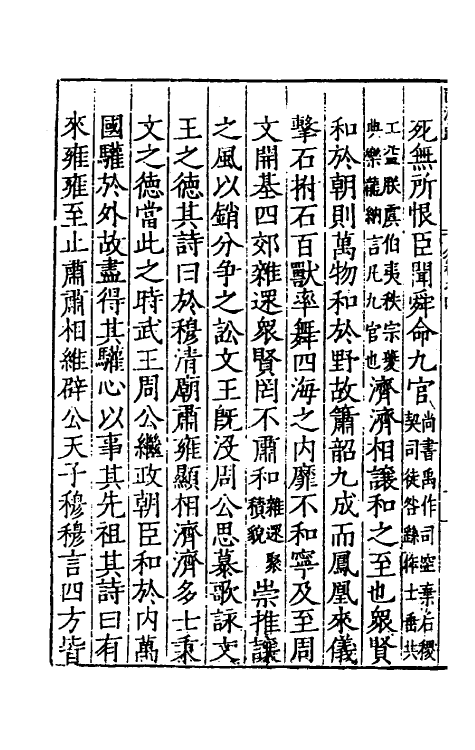 死無所恨臣聞舜命九官尚書禹作司空棄后稷契司徒咎繇作士垂共
工益朕虞伯夷秩宗夔典樂龍納言凡九官也濟濟相讓和之至也衆賢
和於朝則萬物和於野故簫韶九成而鳳凰來儀
擊石拊石百獸率舞四海之内靡不和寧及至周
文開基四郊雜遝衆賢罔不肅和雜遝聚積貌崇推讓
之風以銷分争之訟文王既没周公思慕歌詠文
王之德其詩曰於穆清廟肅雍顯相濟濟多士秉
文之德當此之時武王周公繼政朝臣和於内萬
國驩於外故盡得其驩心以事其先祖其詩曰有
來雍雍至止肅肅相維辟公天子穆穆言四方皆